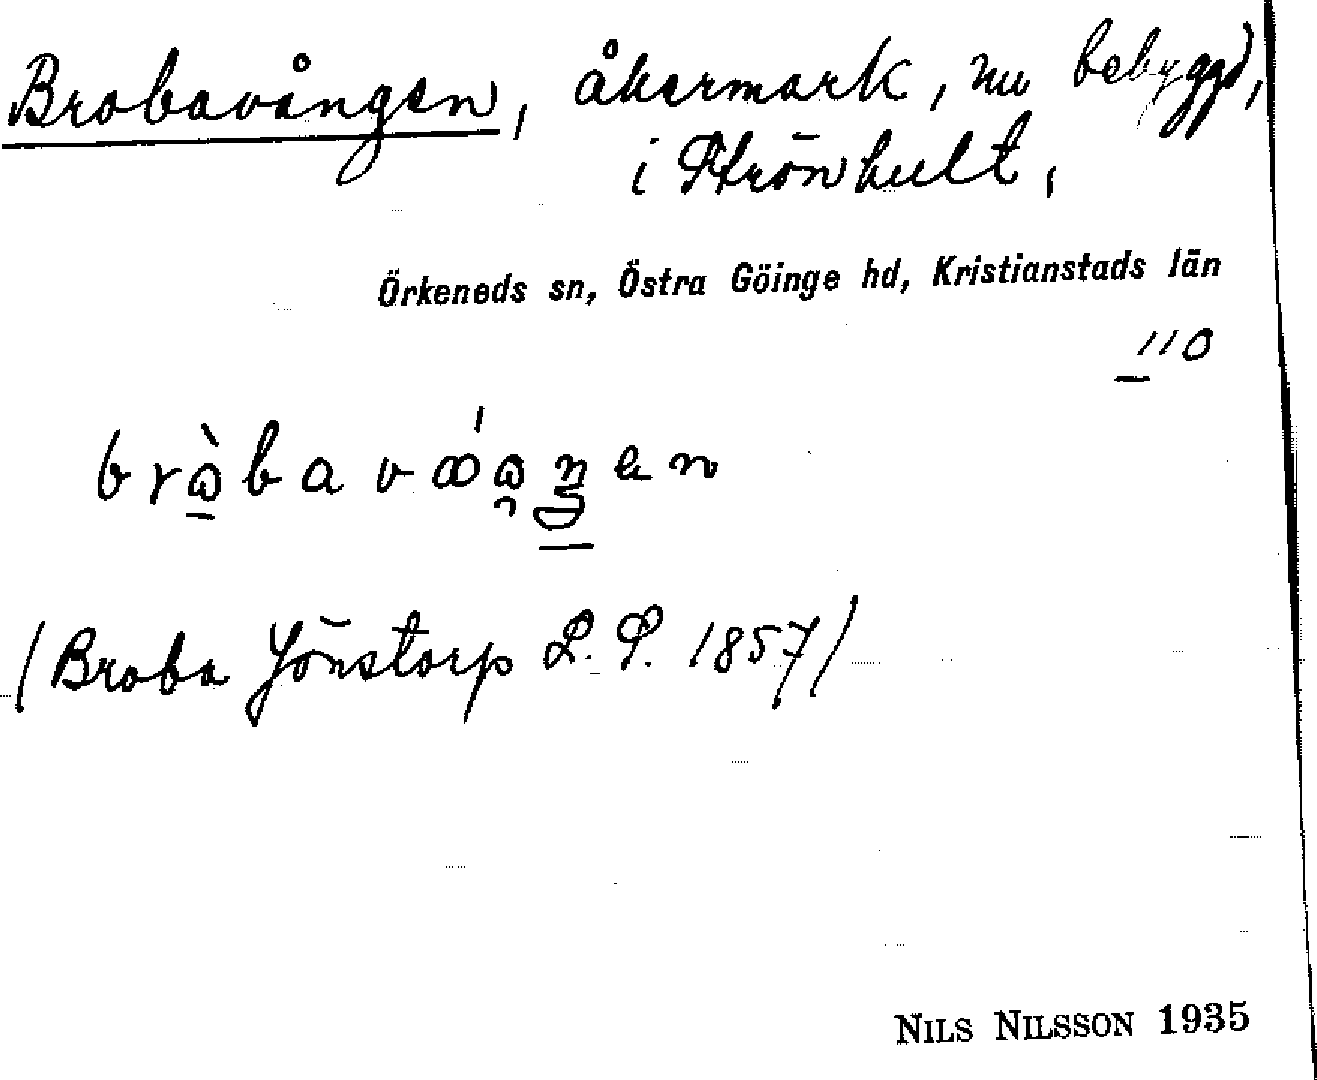 Brobavången, åkermark, nu bebyggd,
i Strönhult,
Örkeneds sn, Östra Göinge hd, Kristianstads län
110
(Broba Jönstorp L. S. 1857)
NILS NILSSON 1935